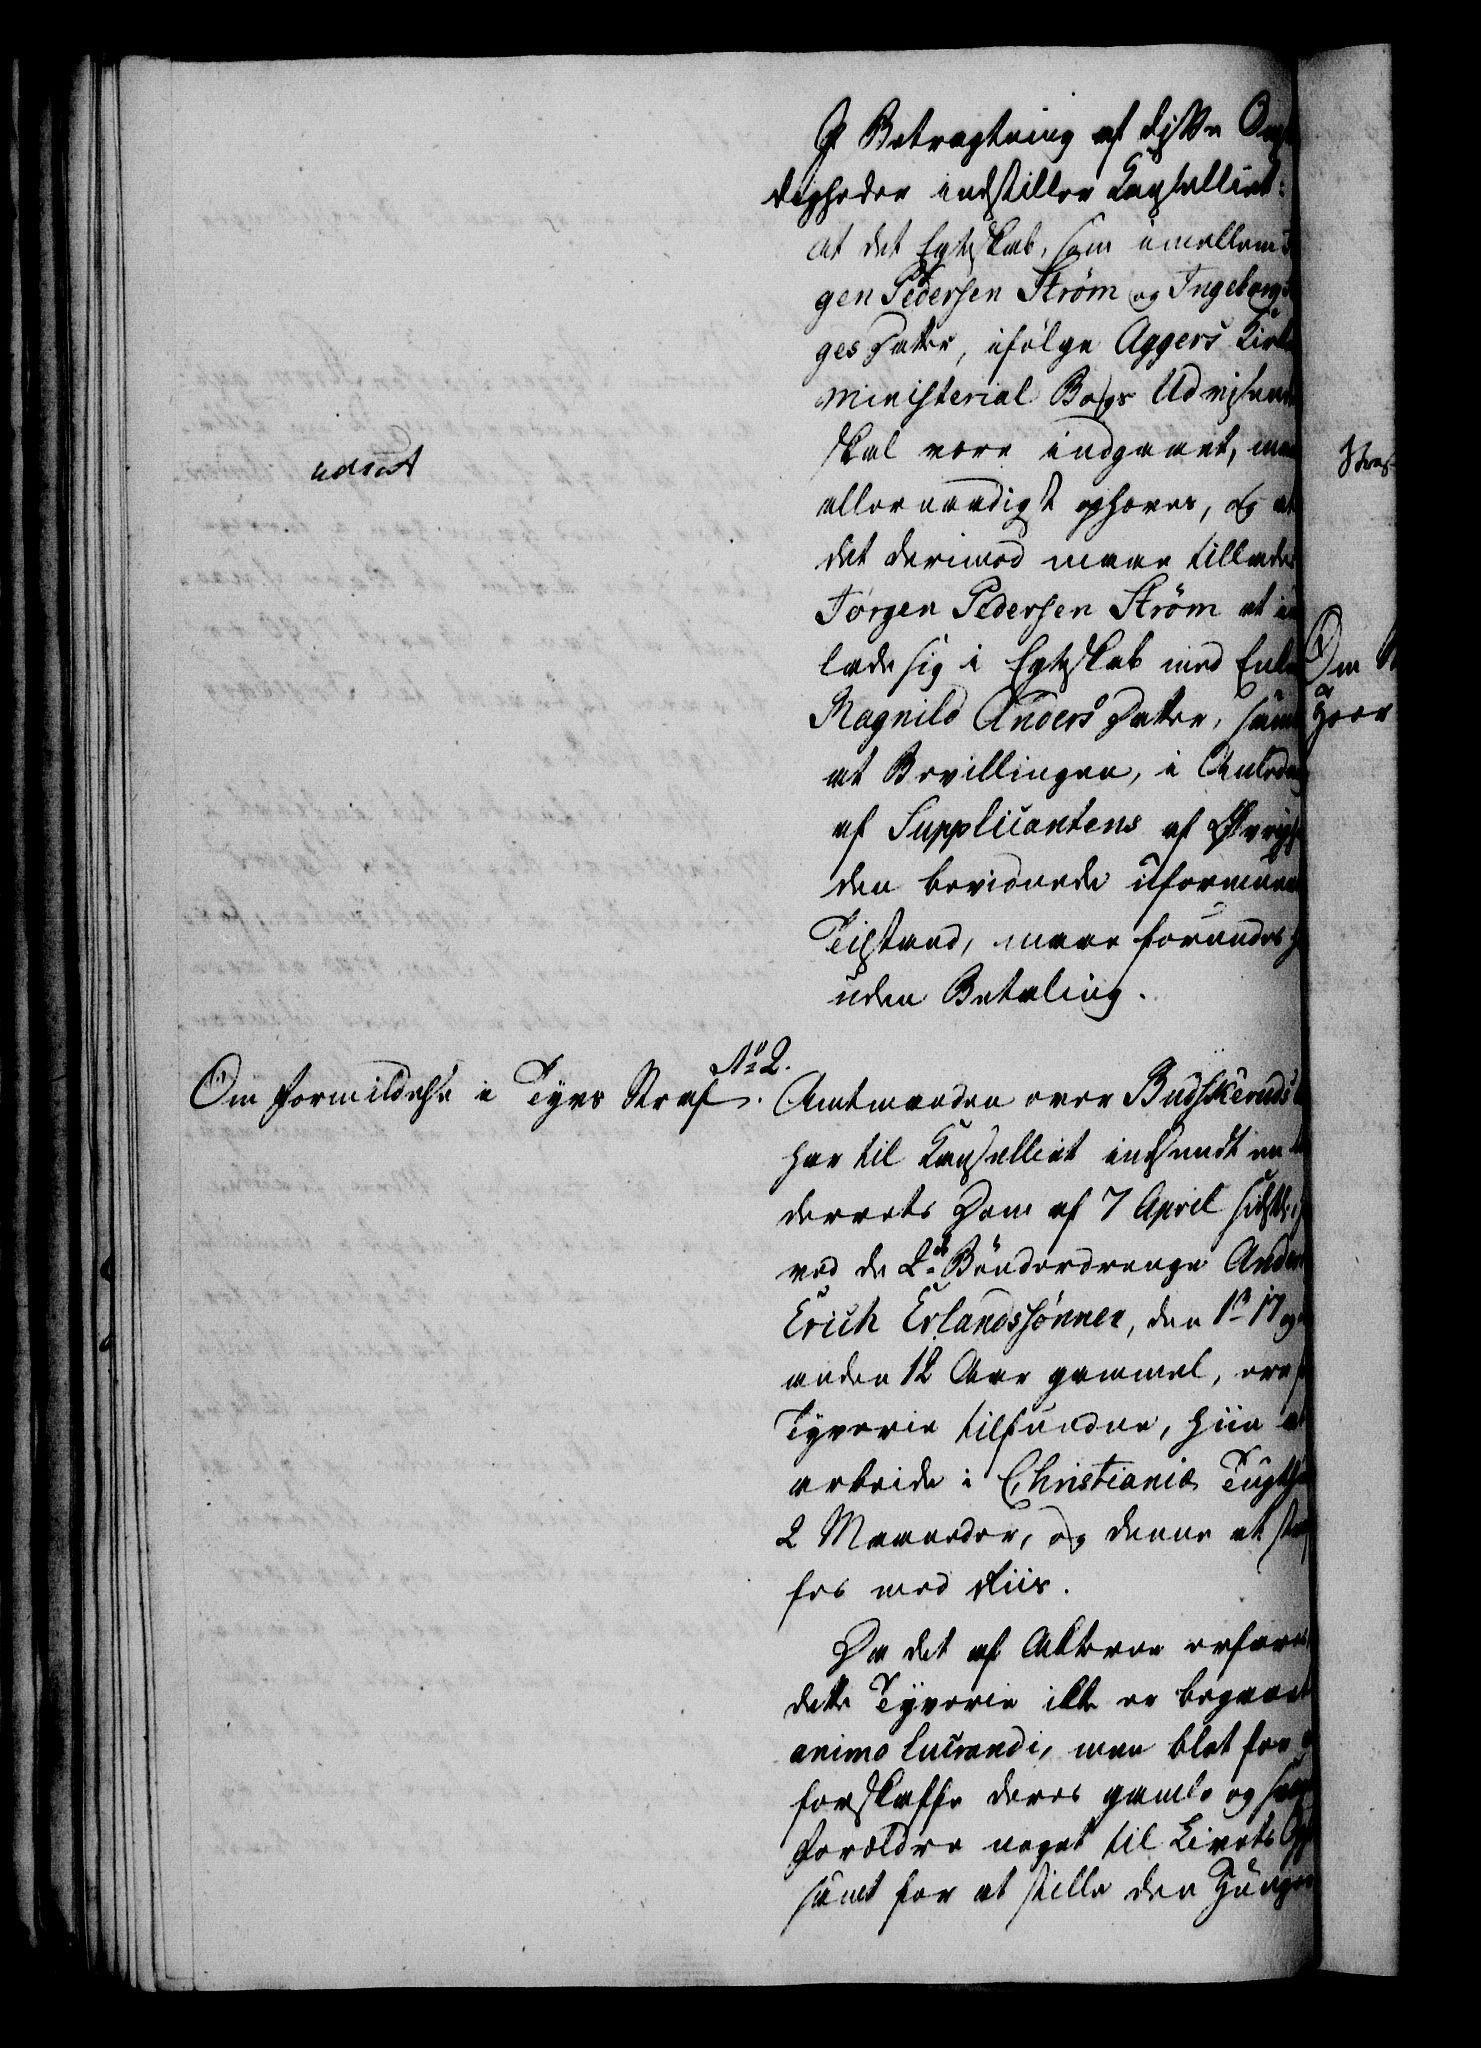 I Betragtning af disse Om
digheder indstiller Kancelliet:
at det Egteskab, som imellem
gen Pedersen Strøm og Ingeborg
ges Datter, ifølge Aggers Kirke
Ministerial Bogs Udvisende
skal være indgaaet, maa
allernaadigst ophæves, og at
udsat
det derimod maae tillades
Jørgen Pedersen Strøm at ind
lade sig i Egteskab med Enke
Ragnild Anders Datter, samt
at Bevillingen, i Anledning
af Supplicantens af Øvrighe
den bevidnede uformuende
Tilstand, maae forundes h
uden Betaling.
No 2.
Om Formildelse i Tyvs Straf.
Amtmanden over Budskeruds
har til Kancelliet indsendt en
derrets Dom af 7 April sidstl.
ved de 2de Bønderdrenge Anders
Erich Erlandssønner, den 1ste 17 og
anden 12 Aar gammel, ere f
Tyverie tilfundne, hiin at
arbeide i Christianiæ Tugthuus
2 Maaneder, og denne at straf
fes med Riis.
Da det af Acterne erfares,
dette Tyverie ikke er begaaet
animo lucrandi, men blot for
forskaffe deres gamle og svage
Forældre noget til Livets Op
samt for at stille den Hunger